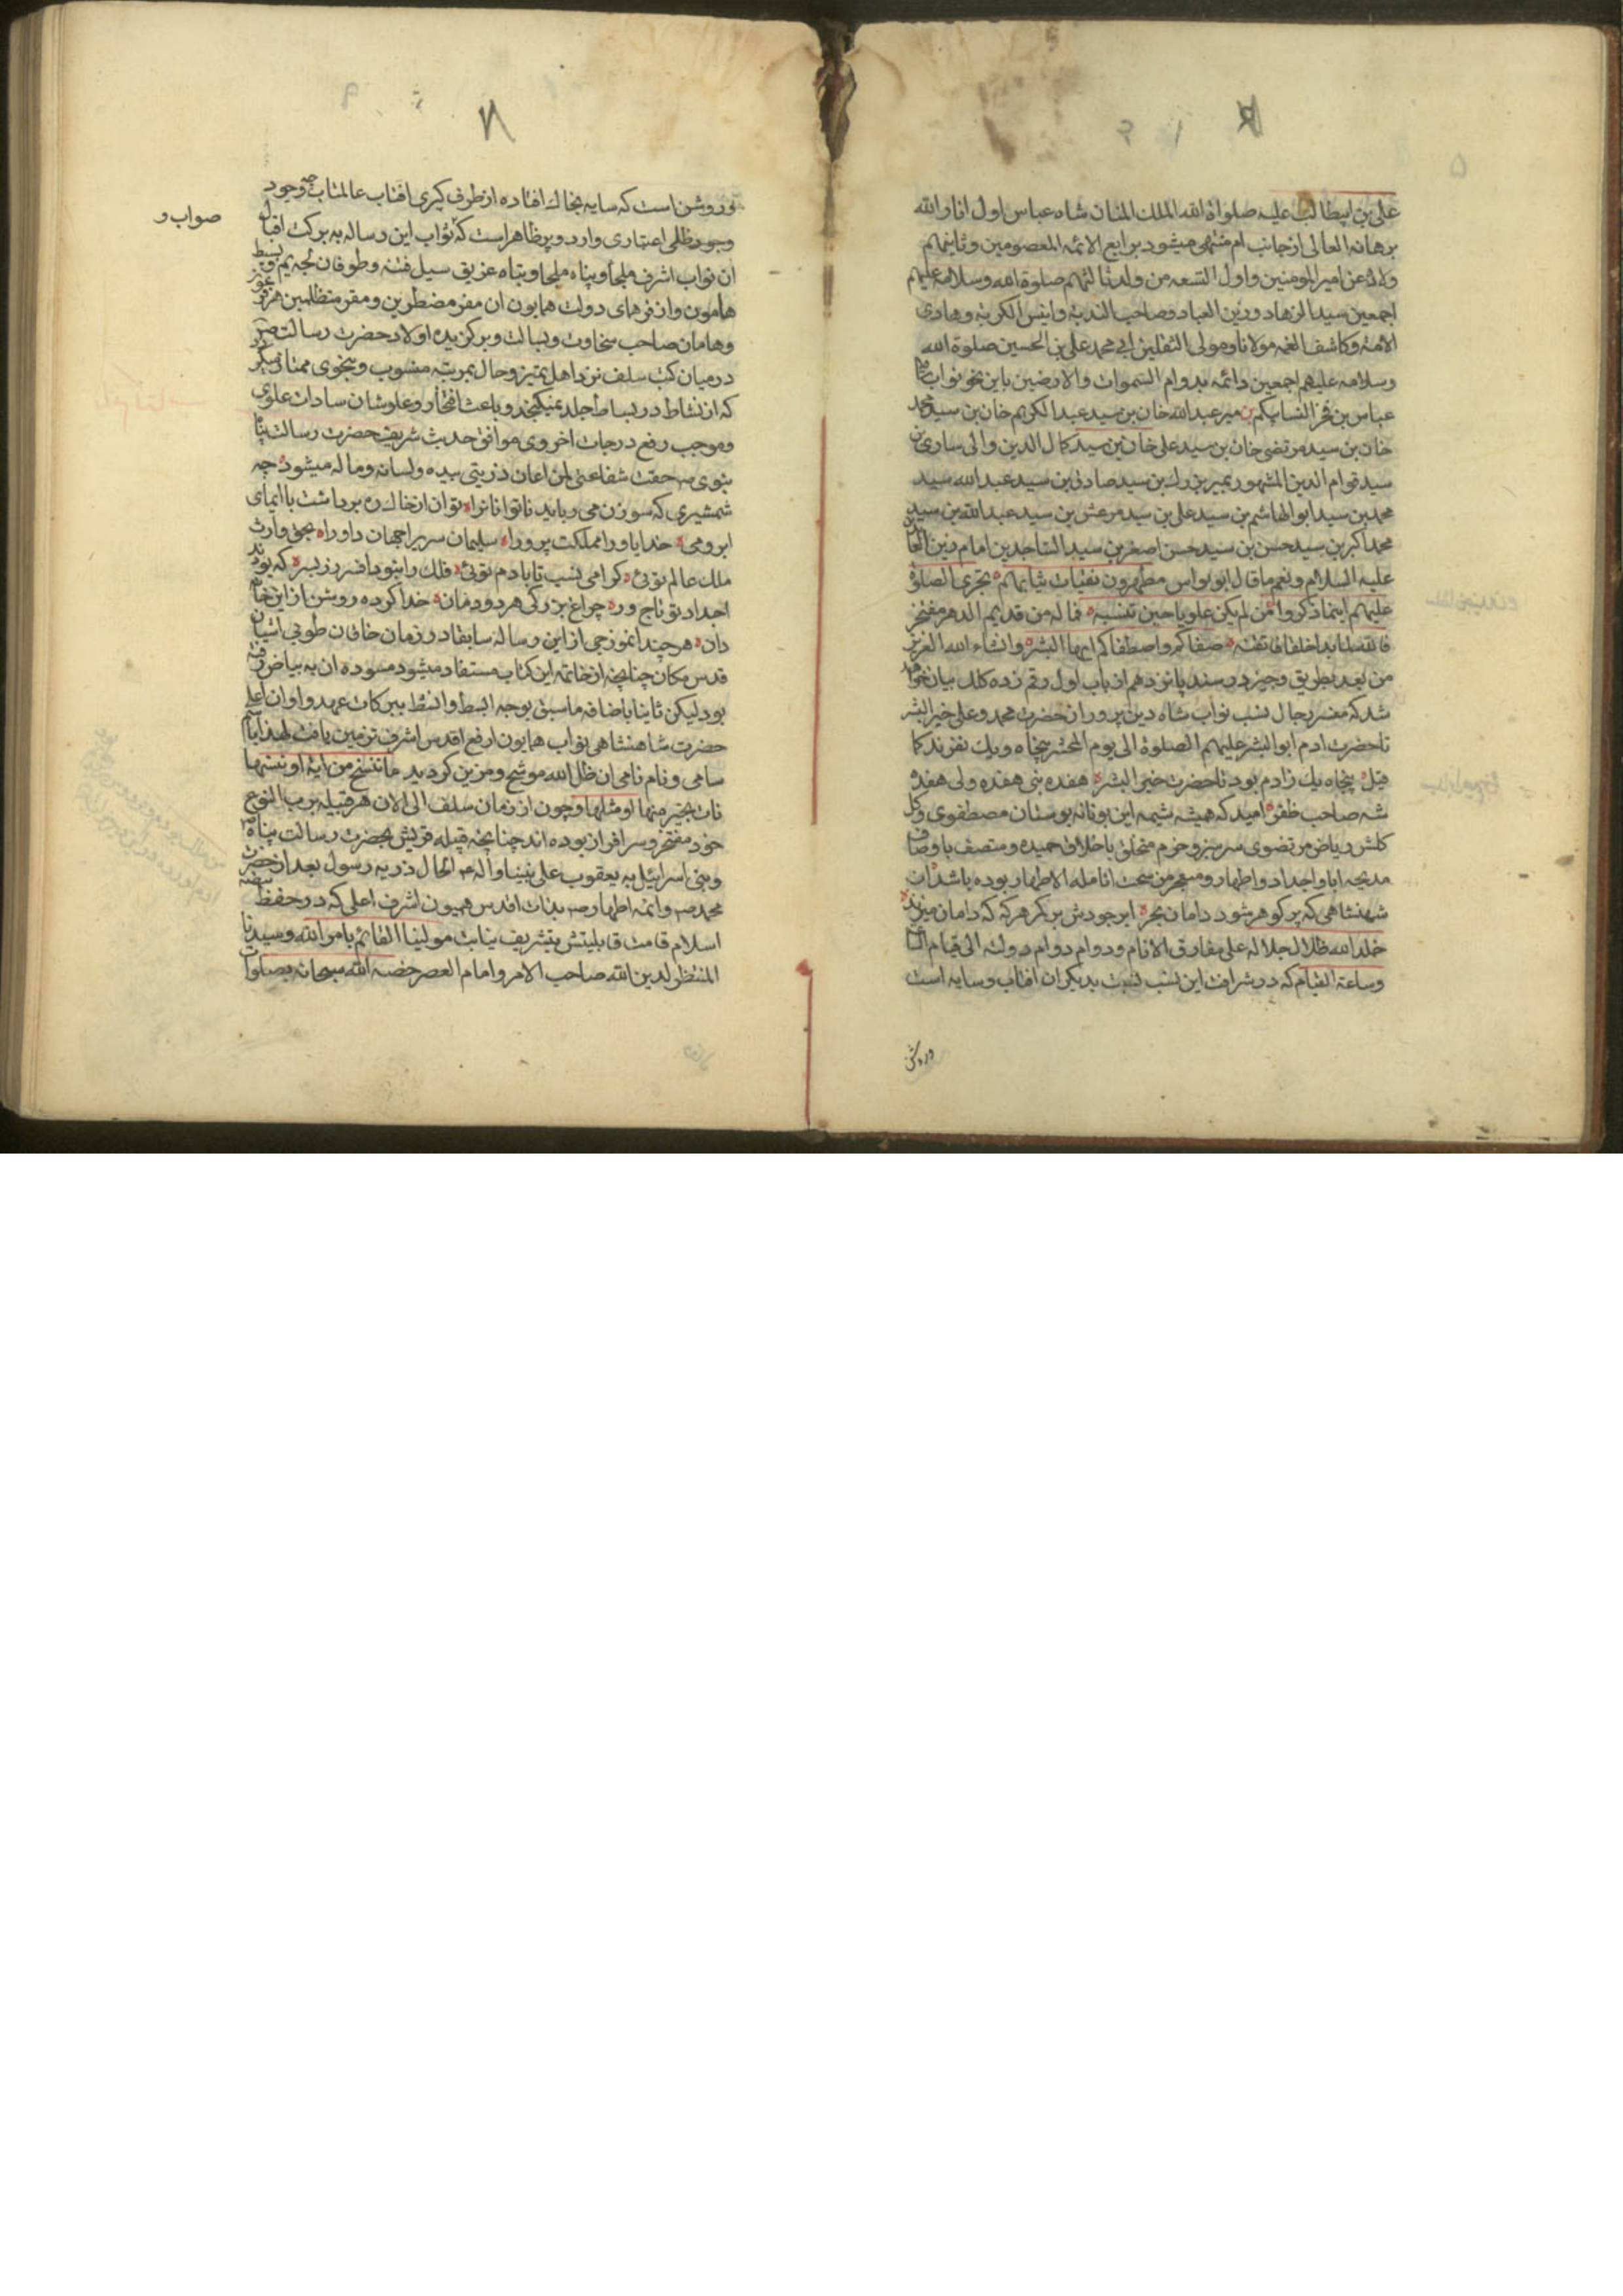 علی بن ابیطالب علیه صلواة الله الملک المنان شاه عباس اول انار الله
برهانه المعالی از جانب ام منتهی میشود برابع الائمه المعصومین و ثانیهم
ولادة عن امیر المومنین و اول التسعه من ولد ثالثهم صلوة الله و سلامه علیهم
اجمعین سید الزهاد و زین العباد و صاحب الندبة و انیس الکربة و هادی
الامة و کاشف الغمه مولانا و مولی الثقلین ابی محمد علی بن الحسین صلوة الله
و سلامه علیهم اجمعین دائمه بدوام السموات و الارضین باین نحو نواب شاه
عباس بن فخر النسا بیکم بن میر عبدالله خان بن سید عبدالکریم خان بن سید محمد
خان بن سید مرتضی خان بن سید علی خان بن سید کمال الدین والی ساری بن
سید قوام الدین المشهور بمیر بزرك بن سید صادق بن سید عبدالله سید
محمد بن سید ابوالهاشم بن سید علی بن سید مرعش بن سید عبدالله بن سید
محمد اکبر بن سید حسن بن سید حسن اصغر بن سید الساجدین امام زین العابدین
علیه السلام و نعم ما قال ابو نواس مطهرون نقیات ثیابهم تجری الصلوة
علیهم اینما ذکروا من لم یکن علویا حین تنسبه فما له من قدیم الدهر مفتخر
فالله لما بدا خلقا فاتقنه صفاکم و اصطفاکم ایها البشر و انشاء الله العزیز
من بعد بطریق وجیز در سند پانزدهم از باب اول رقم زده کلك بیان خواهد
شد که مفسر رجال نسب نواب شاه دین پرور از حضرت محمد و علی خیر البشر
تا حضرت ادم ابوالبشر علیهم الصلوة الی یوم المحشر پنجاه و یك نفرند کما
قیل پنجاه یك زادم بود تا حضرت خیر البشر هفده نبی هفده ولی هفده
شه صاحب ظفر امید که همیشه شیمه این بونانه بوستان مصطفوی و کل
کلشن ریاض مرتضوی سرسبز و خرم متخلق باخلاق حمیده و متصف باوصاف
مدیحه ابا و اجداد و اطهار و مستمر من سحت انامله الاطهار بوده باشد ان
شهنشاهی که پر کوهر شود دامان بحر ابر جودش بر بکر هر که که دامان میزند
خلد الله ظلال جلاله علی مفارق الانام و دوام دوام دولته الی قیام
و ساعة القیام که در شرافت این نسب نسبت بدیکران افتاب و سایه است
وروشن
نور روشن است که سایه بخاك افتاده از طرف کیری افتاب عالمتاب وجود
وجود ظلی اعتباری وارد و پر ظاهر است که ثواب این رساله به برکت اقبال
ان نواب اشرف ملجأ و پناه غریق سیل فتنه و طوفان لجه یم و بسیط
هامون و از فرهای دولت همایون ان مفر مضطرین و مقر متظلمین
و هامان صاحب سخاوت و بسالت و برکزیده اولاد حضرت رسالت
درمیان کتب سلف نزد اهل تمیز و حال بمرتبه منسوب و بنحوی ممتاز میکردد
که از نشاط در بساط جلد نمیکنجد و باعث افتخار و علو شان سادات علوی
و موجب رفع درجات اخروی موافق حدیث شریف حضرت رسالت پناه
نبوی ص حقت شفاعتی لمن اعان ذریتی بیده و لسانه و ماله میشود چه
شمشیری که سوزن می رباید ناتوانانرا توان از خاك ره برداشت با ایمای
ابرومی خدایا ورا مملکت پرورا سلیمان سریرا جهان داورا بحق وارث
ملك عالم توئی کرامی نسب تا بادم توئی فلك را بنود افسر زر بسر که بودند
اجداد تو تاجور چراغ بزرکی هر دودمان خدا کرده روشن از این خاندان
دان هر چند انموزجی از این رساله سابقا در زمان خاقان طوبی اشیان
قدس مکان چنانچه از خاتمه این کتاب مستفاد میشود مسوده ان به بیاض رفته
بود لیکن ثانیا باضافه ما سبق بوجه ابسط و انشط ببرکات عهد و اوان اعلی
حضرت شاهنشاهی نواب همایون ارفع اقدس اشرف تزیین یافت لهذا بنام
سامی و نام نامی ان ظل الله موشح و مزین کردید ما ننسخ من ایة او ننسها
نات بخیر منها او مثلها و چون از زمان سلف الی الان هر قبیله برب النوع
خود مفتخر و سرافراز بوده اند چنانچه قبیله قریش بحضرت رسالت پناه ص
و بنی اسراییل به یعقوب علی نبینا و اله ع الحال ذریه رسول بعد از حضرت
محمد ص و ائمه اطهار ص بذات اقدس همیون اشرف اعلی که در حفظ بیضه
اسلام قامت قابلیتش بتشریف نیابت مولینا القائم بامر الله و سیدنا
المنتظر لدین الله صاحب الامر و امام العصر خصه الله سبحانه بصلوات
صواب و